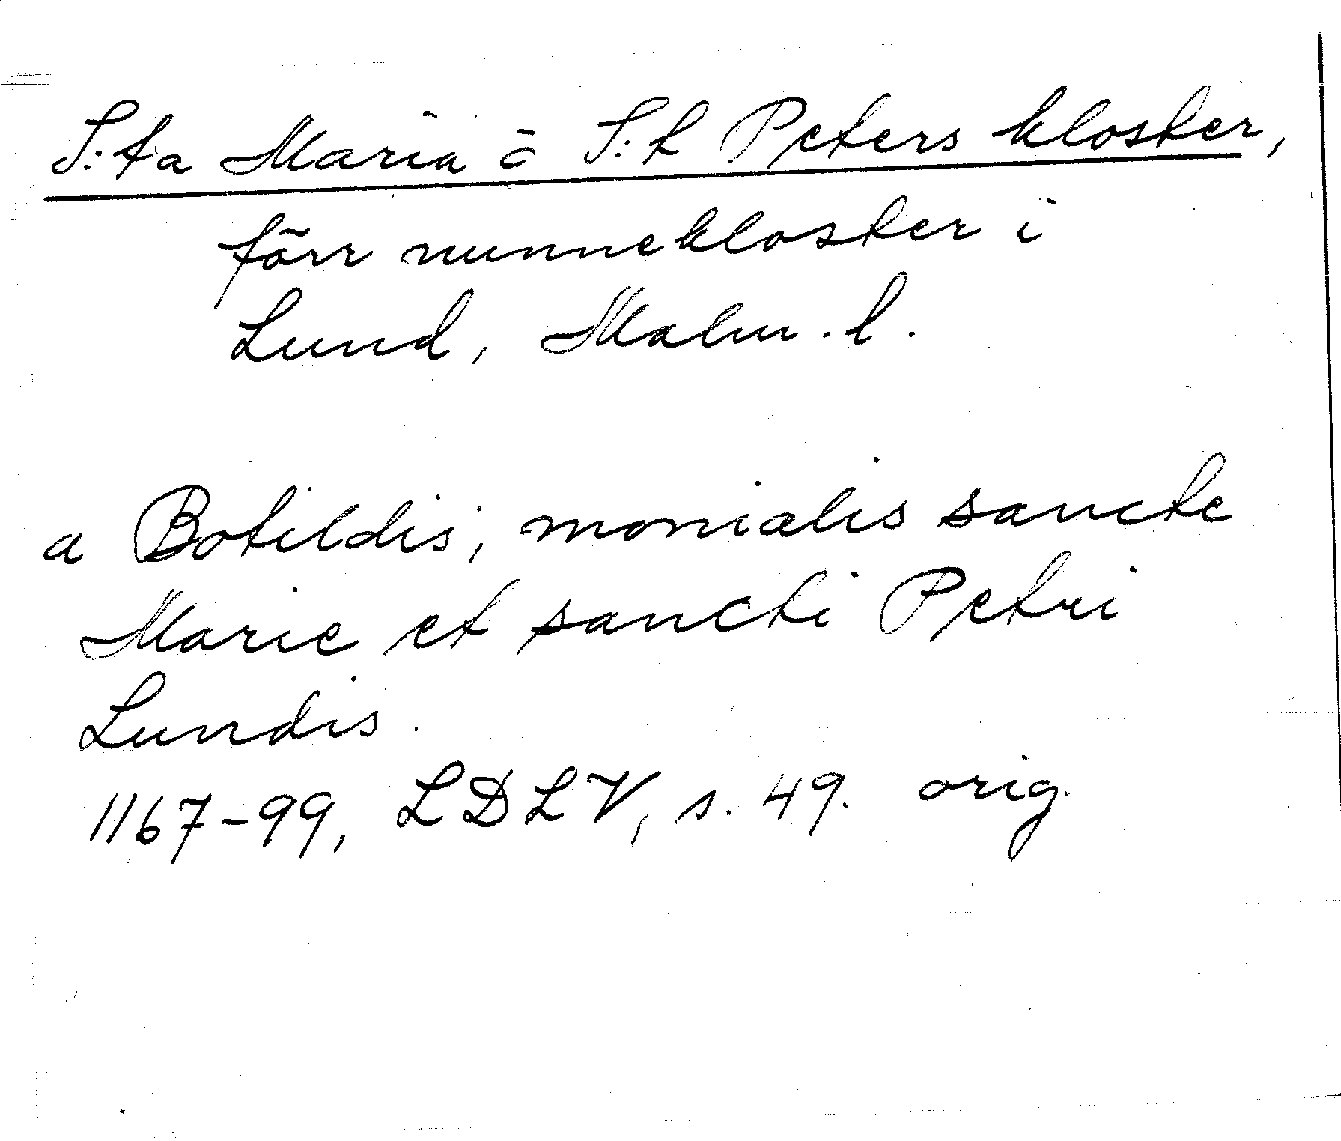 S:ta Maria o S:t Peters kloster,
förr nunnekloster i
Lund, Malm. l.
a Botildis, monialis sancte
Marie et sancti Petri
Lundis.
1167-99, LDLV, s. 49. orig.